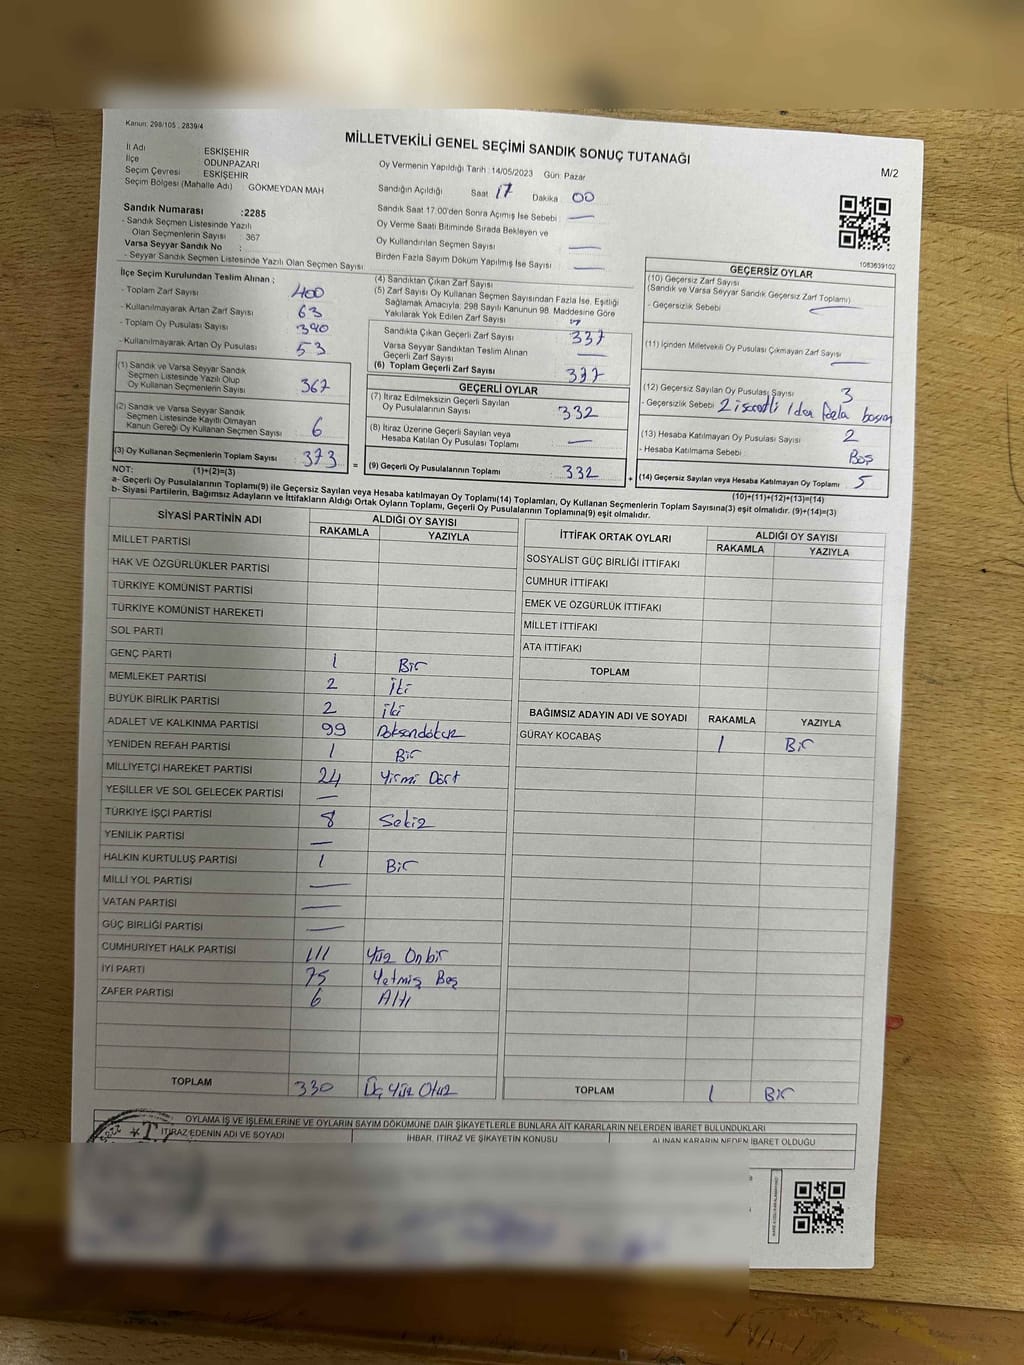 Kanun: 298/105 , 2839/4
MİLLETVEKİLİ GENEL SEÇİMİ SANDIK SONUÇ TUTANAĞI
M/2
İl Adı : ESKİŞEHİR
İlçe : ODUNPAZARI
Seçim Çevresi : ESKİŞEHİR
Seçim Bölgesi (Mahalle Adı) : GÖKMEYDAN MAH
Sandık Numarası :2285
- Sandık Seçmen Listesinde Yazılı
Olan Seçmenlerin Sayısı : 367
Varsa Seyyar Sandık No :
- Seyyar Sandık Seçmen Listesinde Yazılı Olan Seçmen Sayısı :
Oy Vermenin Yapıldığı Tarih : 14/05/2023 Gün: Pazar
Sandığın Açıldığı Saat 17 Dakika 00
Sandık Saat 17:00'den Sonra Açımış İse Sebebi —
Oy Verme Saati Bitiminde Sırada Bekleyen ve
Oy Kullandırılan Seçmen Sayısı —
Birden Fazla Sayım Döküm Yapılmış İse Sayısı —
1083639102
İlçe Seçim Kurulundan Teslim Alınan ;
- Toplam Zarf Sayısı 400
- Kullanılmayarak Artan Zarf Sayısı 63
- Toplam Oy Pusulası Sayısı 390
- Kullanılmayarak Artan Oy Pusulası 53
(1) Sandık ve Varsa Seyyar Sandık
Seçmen Listesinde Yazılı Olup
Oy Kullanan Seçmenlerin Sayısı 367
(2) Sandık ve Varsa Seyyar Sandık
Seçmen Listesinde Kayıtlı Olmayan
Kanun Gereği Oy Kullanan Seçmen Sayısı 6
(3) Oy Kullanan Seçmenlerin Toplam Sayısı 373
(1)+(2)=(3)
(4) Sandıktan Çıkan Zarf Sayısı
(5) Zarf Sayısı Oy Kullanan Seçmen Sayısından Fazla İse, Eşitliği
Sağlamak Amacıyla; 298 Sayılı Kanunun 98. Maddesine Göre
Yakılarak Yok Edilen Zarf Sayısı
Sandıkta Çıkan Geçerli Zarf Sayısı 337
Varsa Seyyar Sandıktan Teslim Alınan
Geçerli Zarf Sayısı —
(6) Toplam Geçerli Zarf Sayısı 337
GEÇERLİ OYLAR
(7) İtiraz Edilmeksizin Geçerli Sayılan
Oy Pusulalarının Sayısı 332
(8) İtiraz Üzerine Geçerli Sayılan veya
Hesaba Katılan Oy Pusulası Toplamı —
= (9) Geçerli Oy Pusulalarının Toplamı 332 +
GEÇERSİZ OYLAR
(10) Geçersiz Zarf Sayısı
(Sandık ve Varsa Seyyar Sandık Geçersiz Zarf Toplamı)
- Geçersizlik Sebebi —
(11) İçinden Milletvekili Oy Pusulası Çıkmayan Zarf Sayısı —
(12) Geçersiz Sayılan Oy Pusulası Sayısı 3
- Geçersizlik Sebebi 2 işaretli 1den fazla basım
(13) Hesaba Katılmayan Oy Pusulası Sayısı 2
- Hesaba Katılmama Sebebi Boş
(14) Geçersiz Sayılan veya Hesaba Katılmayan Oy Toplamı 5
(10)+(11)+(12)+(13)=(14)
NOT:
a- Geçerli Oy Pusulalarının Toplamı(9) ile Geçersiz Sayılan veya Hesaba katılmayan Oy Toplamı(14) Toplamları, Oy Kullanan Seçmenlerin Toplam Sayısına(3) eşit olmalıdır. (9)+(14)=(3)
b- Siyasi Partilerin, Bağımsız Adayların ve İttifakların Aldığı Ortak Oyların Toplamı, Geçerli Oy Pusulalarının Toplamına(9) eşit olmalıdır.
SİYASİ PARTİNİN ADI ALDIĞI OY SAYISI
RAKAMLA YAZIYLA
MİLLET PARTİSİ
HAK VE ÖZGÜRLÜKLER PARTİSİ
TÜRKİYE KOMÜNİST PARTİSİ
TÜRKİYE KOMÜNİST HAREKETİ
SOL PARTİ
GENÇ PARTİ 1 Bir
MEMLEKET PARTİSİ 2 İki
BÜYÜK BİRLİK PARTİSİ 2 iki
ADALET VE KALKINMA PARTİSİ 99 Doksandokuz
YENİDEN REFAH PARTİSİ 1 Bir
MİLLİYETÇİ HAREKET PARTİSİ 24 Yirmi Dört
YEŞİLLER VE SOL GELECEK PARTİSİ —
TÜRKİYE İŞÇİ PARTİSİ 8 Sekiz
YENİLİK PARTİSİ —
HALKIN KURTULUŞ PARTİSİ 1 Bir
MİLLİ YOL PARTİSİ —
VATAN PARTİSİ —
GÜÇ BİRLİĞİ PARTİSİ —
CUMHURİYET HALK PARTİSİ 111 Yüz Onbir
İYİ PARTİ 75 Yetmiş Beş
ZAFER PARTİSİ 6 Altı
TOPLAM 330 Üç Yüz Otuz
İTTİFAK ORTAK OYLARI ALDIĞI OY SAYISI
RAKAMLA YAZIYLA
SOSYALİST GÜÇ BİRLİĞİ İTTİFAKI
CUMHUR İTTİFAKI
EMEK VE ÖZGÜRLÜK İTTİFAKI
MİLLET İTTİFAKI
ATA İTTİFAKI
TOPLAM
BAĞIMSIZ ADAYIN ADI VE SOYADI RAKAMLA YAZIYLA
GÜRAY KOCABAŞ 1 Bir
TOPLAM 1 Bir
OYLAMA İŞ VE İŞLEMLERİNE VE OYLARIN SAYIM DÖKÜMÜNE DAİR ŞİKAYETLERLE BUNLARA AİT KARARLARIN NELERDEN İBARET BULUNDUKLARI
İTİRAZ EDENİN ADI VE SOYADI İHBAR, İTİRAZ VE ŞİKAYETİN KONUSU ALINAN KARARIN NEDEN İBARET OLDUĞU